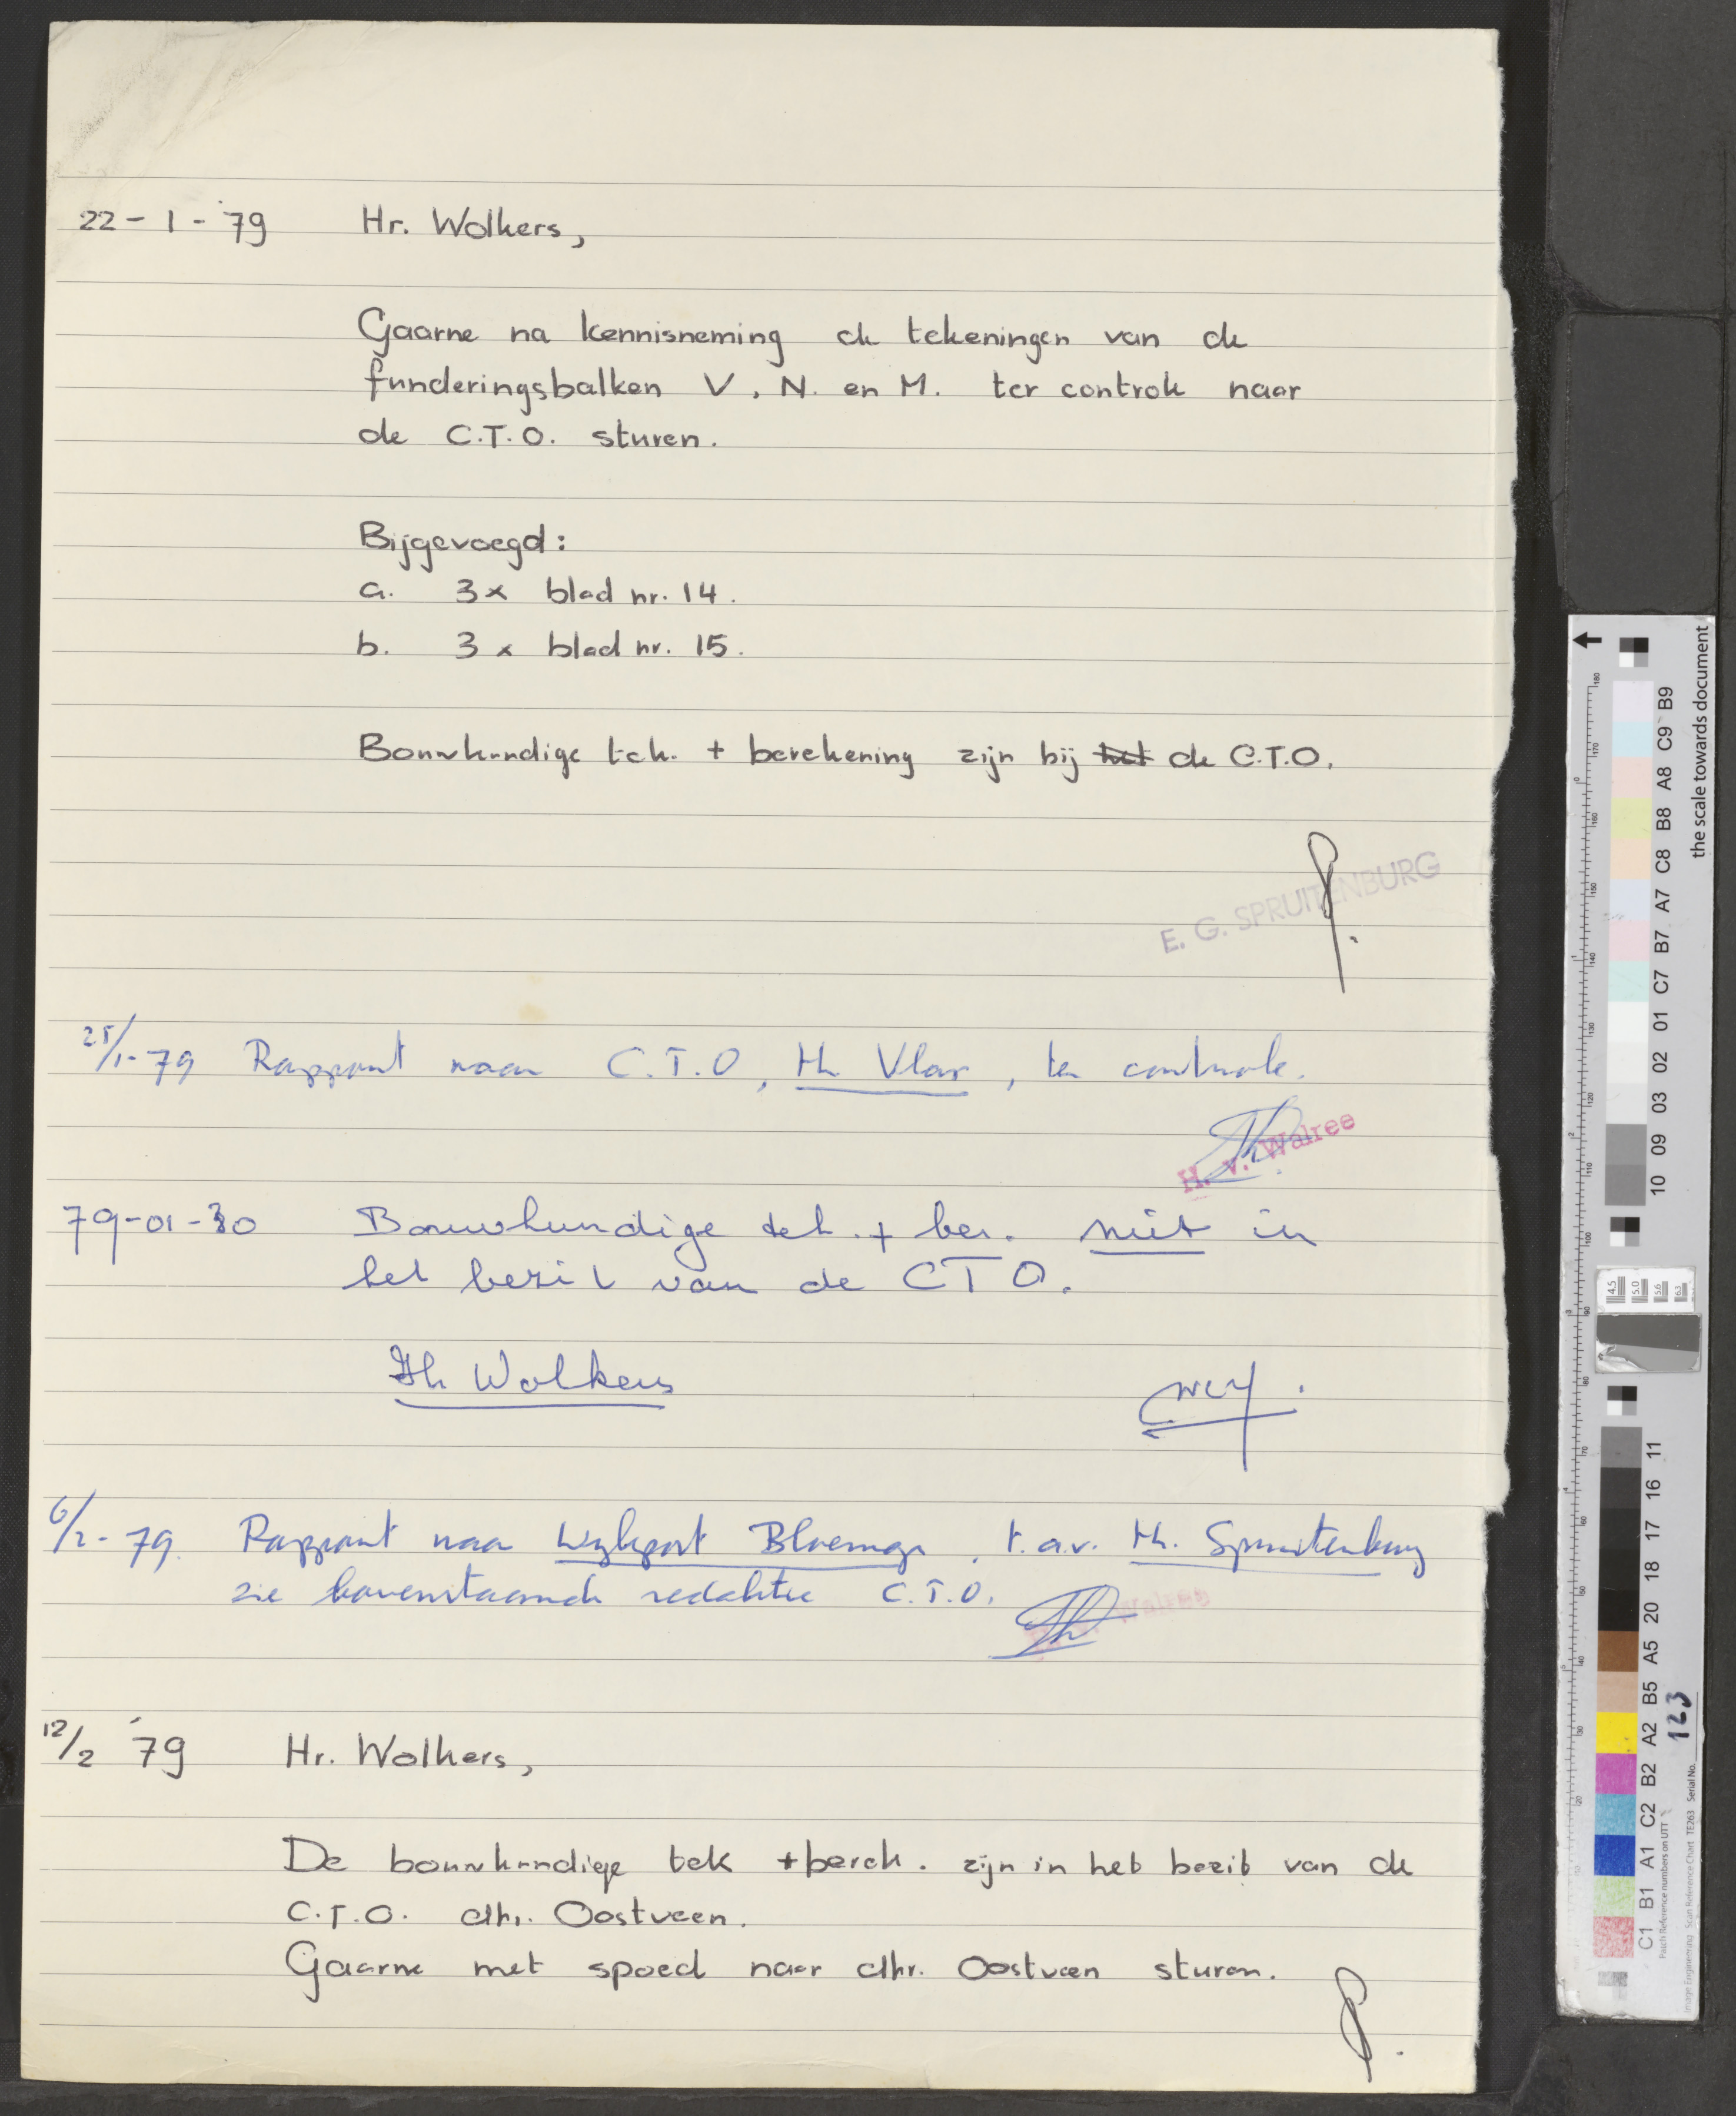 22-1-'79 Hr. Wolkers,
Gaarne na kennisneming de tekeningen van de
funderingsbalken V, N. en M. ter controle naar
de C.T.O. sturen.
Bijgevoegd:
a. 3x blad nr. 14.
b. 3x blad nr. 15.
Bouwkundige tek. + berekening zijn bij het de C.T.O.
E. G. SPRUITENBURG
25/1-79 Rapport naar C.T.O, Hr. Vlas, ter controle.
H. v. Walree
79-01-30 Bouwkundige tek. + ber. niet in
het bezit van de CTO.
Hr Wolkers
6/2-79. Rapport naar Wijkpost Bloemga, t.a.v. Hr. Spruitenburg
zie bovenstaande redaktie C.T.O.
Walree
12/2 '79 Hr. Wolkers,
De bouwkundige tek + berek. zijn in het bezit van de
C.T.O. dhr. Oostveen.
Gaarne met spoed naar dhr. Oostveen sturen.
the scale towards document
B9 C9 A8 B8 C8 A7 B7 C7 01 02 03 09 10
11 16 17 18 20 A5 B5 A2 B2 C2 A1 B1 C1
4.5 5.0 5.6 6.3
Image Engineering Scan Reference Chart TE263 Serial No. 123
Patch Reference numbers on UTT